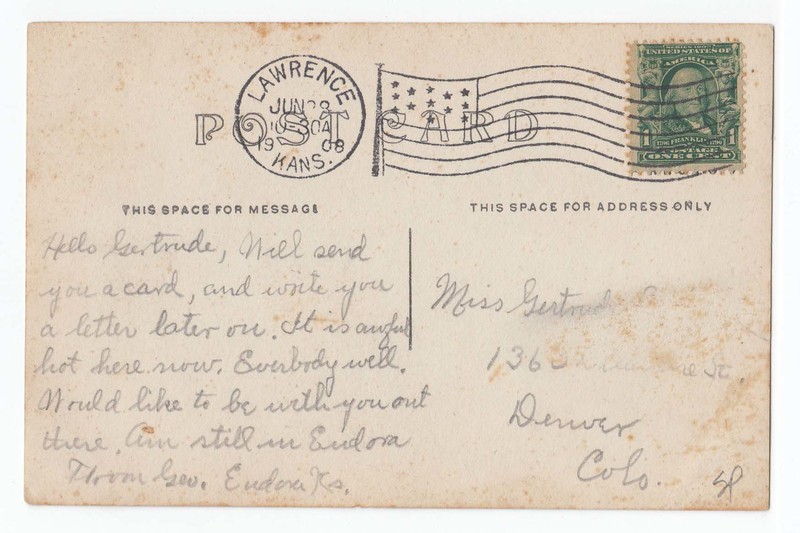 LAWRENCE
JUN 28
1908
KANS.
POST CARD
SERIES 1902
UNITED STATES OF
AMERICA
1 FRANKLIN 1
POSTAGE
ONE CENT
THIS SPACE FOR MESSAGE
Hello Gertrude, Will send
you a card, and write you
a letter later on. It is awful
hot here now. Everbody well.
Would like to be with you out
there. Am still in Eudora
From Geo. Eudora Ks.
THIS SPACE FOR ADDRESS ONLY
Miss Gertrude
136
St.
Denver
Colo.